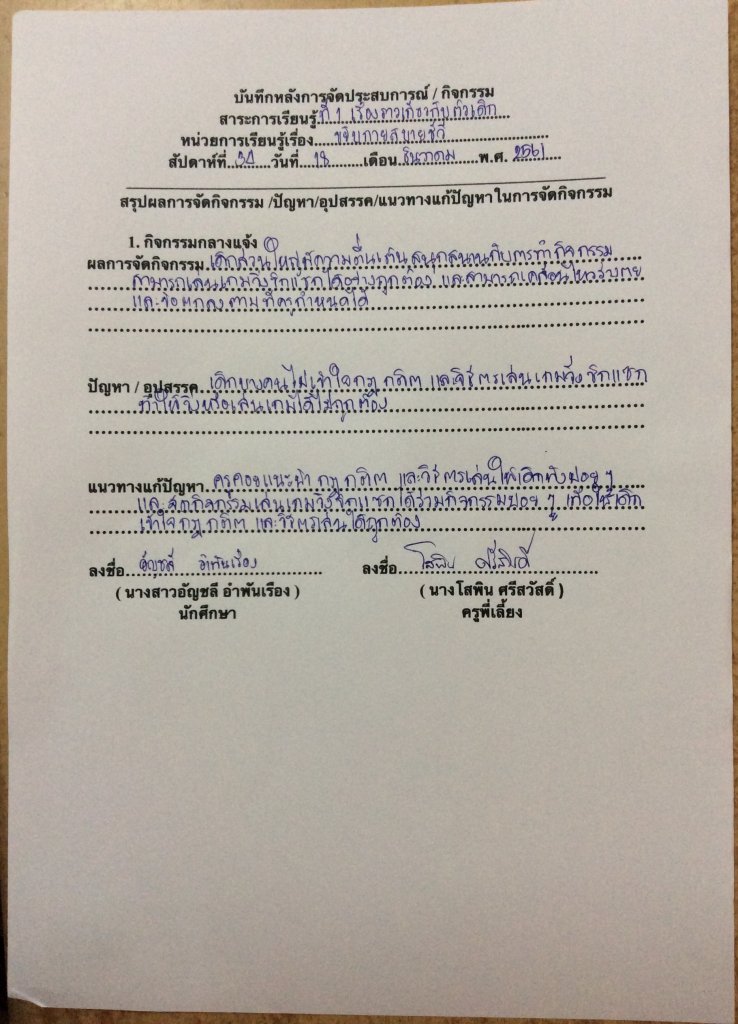 บันทึกหลังการจัดประสบการณ์ / กิจกรรม
สาระการเรียนรู้ ที่ 1 เรื่องราวเกี่ยวกับตัวเด็ก
หน่วยการเรียนรู้เรื่อง ขยับกายสบายชีวี
สัปดาห์ที่ วันที่ 18 เดือน ธันวาคม พ.ศ. 2561
สรุปผลการจัดกิจกรรม /ปัญหา/อุปสรรค/แนวทางแก้ปัญหาในการจัดกิจกรรม
1. กิจกรรมกลางแจ้ง
ผลการจัดกิจกรรม เด็กส่วนใหญ่มีความตื่นเต้น สนุกสนานกับการทำกิจกรรม
สามารถเล่นเกมวิ่งซิกแซกได้อย่างถูกต้อง และสามารถเคลื่อนไหวร่างกาย
และข้อตกลงตามที่ครูกำหนดได้
ปัญหา / อุปสรรค เด็กบางคนไม่เข้าใจกฎ กติกา และวิธีการเล่นเกมวิ่งซิกแซก
ทำให้วิ่งหรือเล่นเกมได้ไม่ถูกต้อง
แนวทางแก้ปัญหา ครูคอยแนะนำ กฎ กติกา และวิธีการเล่นให้เด็กฟังบ่อย ๆ
และจัดกิจกรรมเล่นเกมวิ่งซิกแซกได้ร่วมกิจกรรมบ่อย ๆ เพื่อให้เด็ก
เข้าใจกฎ กติกา และวิธีการเล่นได้ถูกต้อง
ลงชื่อ อัญชลี อำพันเรือง ลงชื่อ โสพิน ศรีสวัสดิ์
( นางสาวอัญชลี อำพันเรือง ) ( นางโสพิน ศรีสวัสดิ์ )
นักศึกษา ครูพี่เลี้ยง